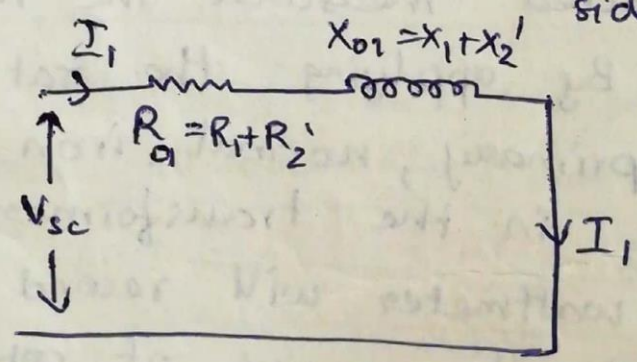 sid
I₁
X₀₁ = X₁ + X₂'
R₀₁ = R₁ + R₂'
Vsc
I₁